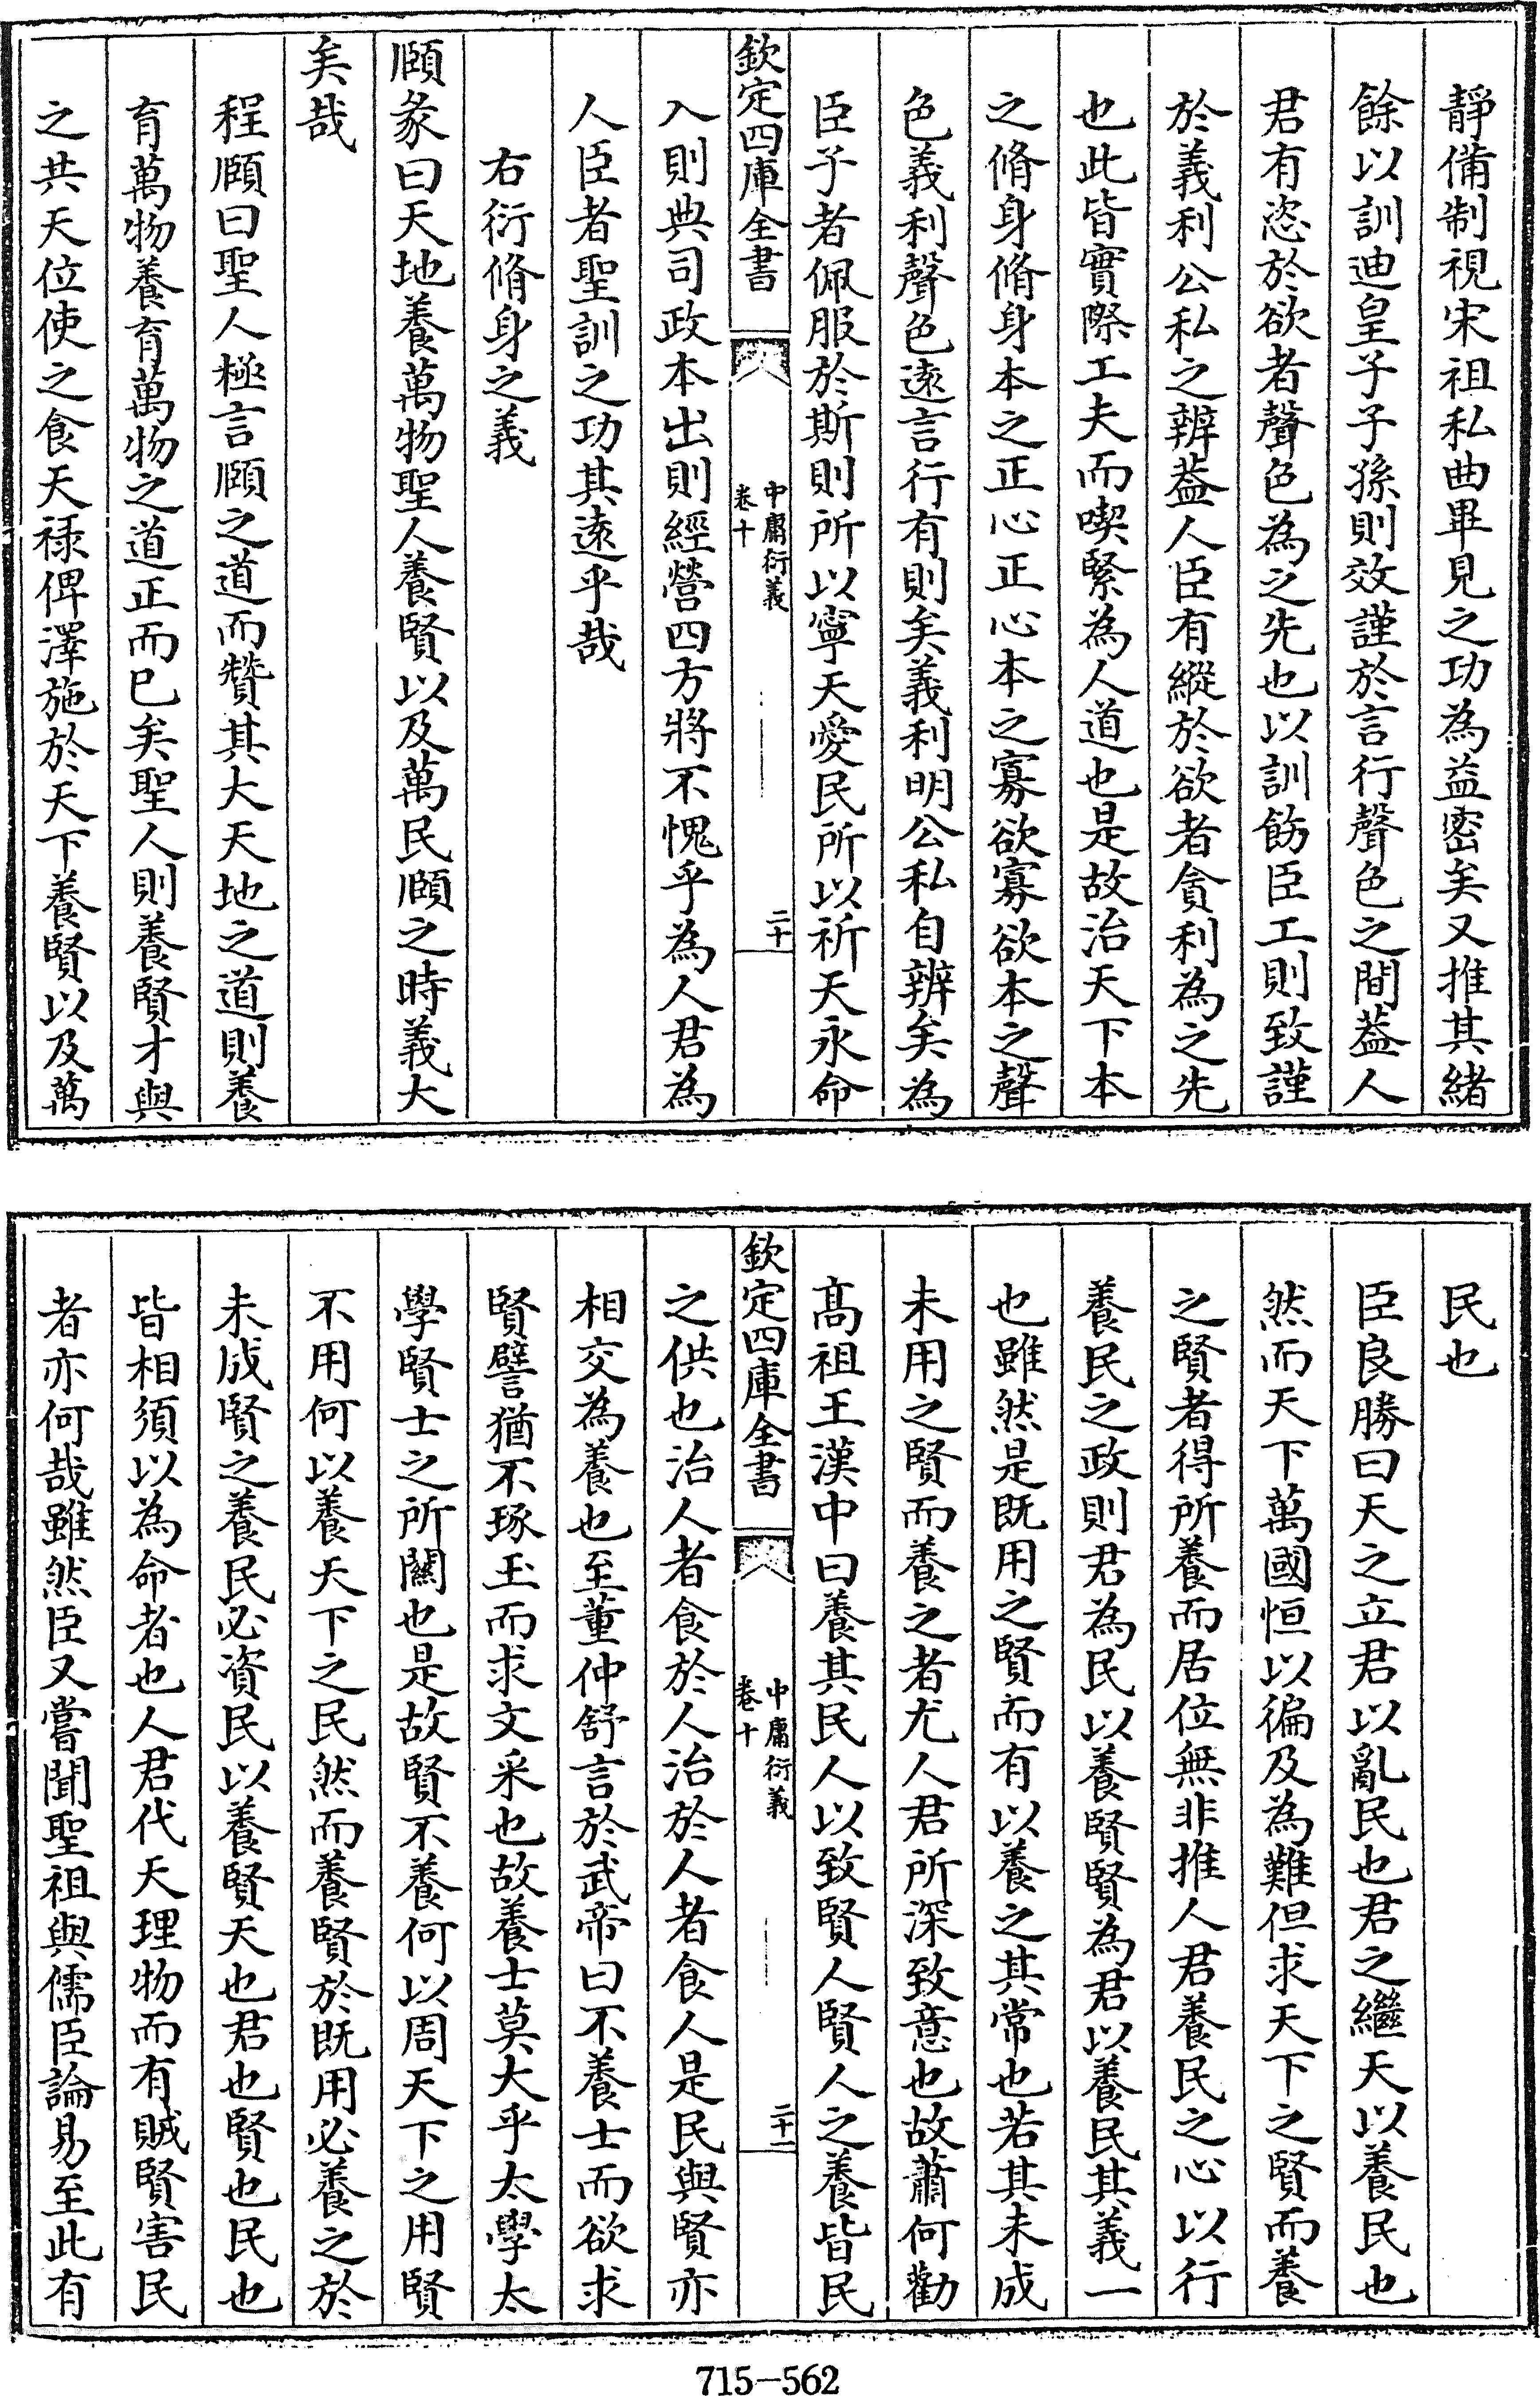 靜備制視宋祖私曲畢見之功為益密矣又推其緒
餘以訓迪皇子子孫則效謹於言行聲色之間蓋人
君有恣於欲者聲色為之先也以訓飭臣工則致謹
於義利公私之辨蓋人臣有縱於欲者貪利為之先
也此皆實際工夫而喫緊為人道也是故治天下本
之脩身脩身本之正心正心本之寡欲寡欲本之聲
色義利聲色遠言行有則矣義利明公私自辨矣為
臣子者佩服於斯則所以寧天愛民所以祈天永命
欽定四庫全書
中庸衍義
卷十
二十
入則典司政本出則經營四方將不愧乎為人君為
人臣者聖訓之功其遠乎哉
右衍脩身之義
頤彖曰天地養萬物聖人養賢以及萬民頤之時義大
矣哉
程頤曰聖人極言頤之道而贊其大天地之道則養
育萬物養育萬物之道正而已矣聖人則養賢才與
之共天位使之食天祿俾澤施於天下養賢以及萬
民也
臣良勝曰天之立君以亂民也君之繼天以養民也
然而天下萬國恒以徧及為難但求天下之賢而養
之賢者得所養而居位無非推人君養民之心以行
養民之政則君為民以養賢賢為君以養民其義一
也雖然是既用之賢而有以養之其常也若其未成
未用之賢而養之者尤人君所深致意也故蕭何勸
高祖王漢中曰養其民人以致賢人賢人之養皆民
欽定四庫全書
中庸衍義
卷十
二十一
之供也治人者食於人治於人者食人是民與賢亦
相交為養也至董仲舒言於武帝曰不養士而欲求
賢譬猶不琢玉而求文采也故養士莫大乎太學太
學賢士之所關也是故賢不養何以周天下之用賢
不用何以養天下之民然而養賢於既用必養之於
未成賢之養民必資民以養賢天也君也賢也民也
皆相須以為命者也人君代天理物而有賊賢害民
者亦何哉雖然臣又嘗聞聖祖與儒臣論易至此有
715-562